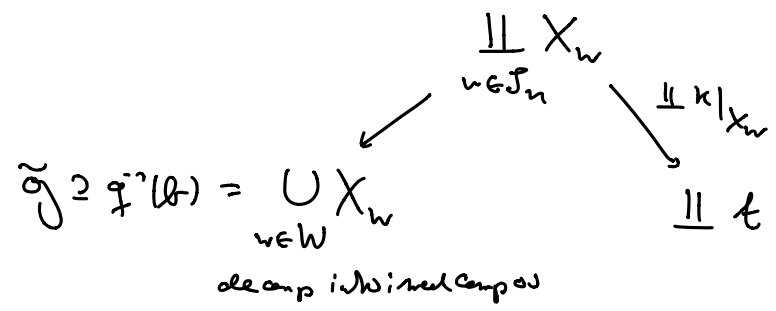 ∐ X_w
w ∈ S_n
∐ κ|_{X_w}
g̃ ⊇ q^{-1}(b) = ∪ X_w
w ∈ W
∐ t
decomp into irred compos